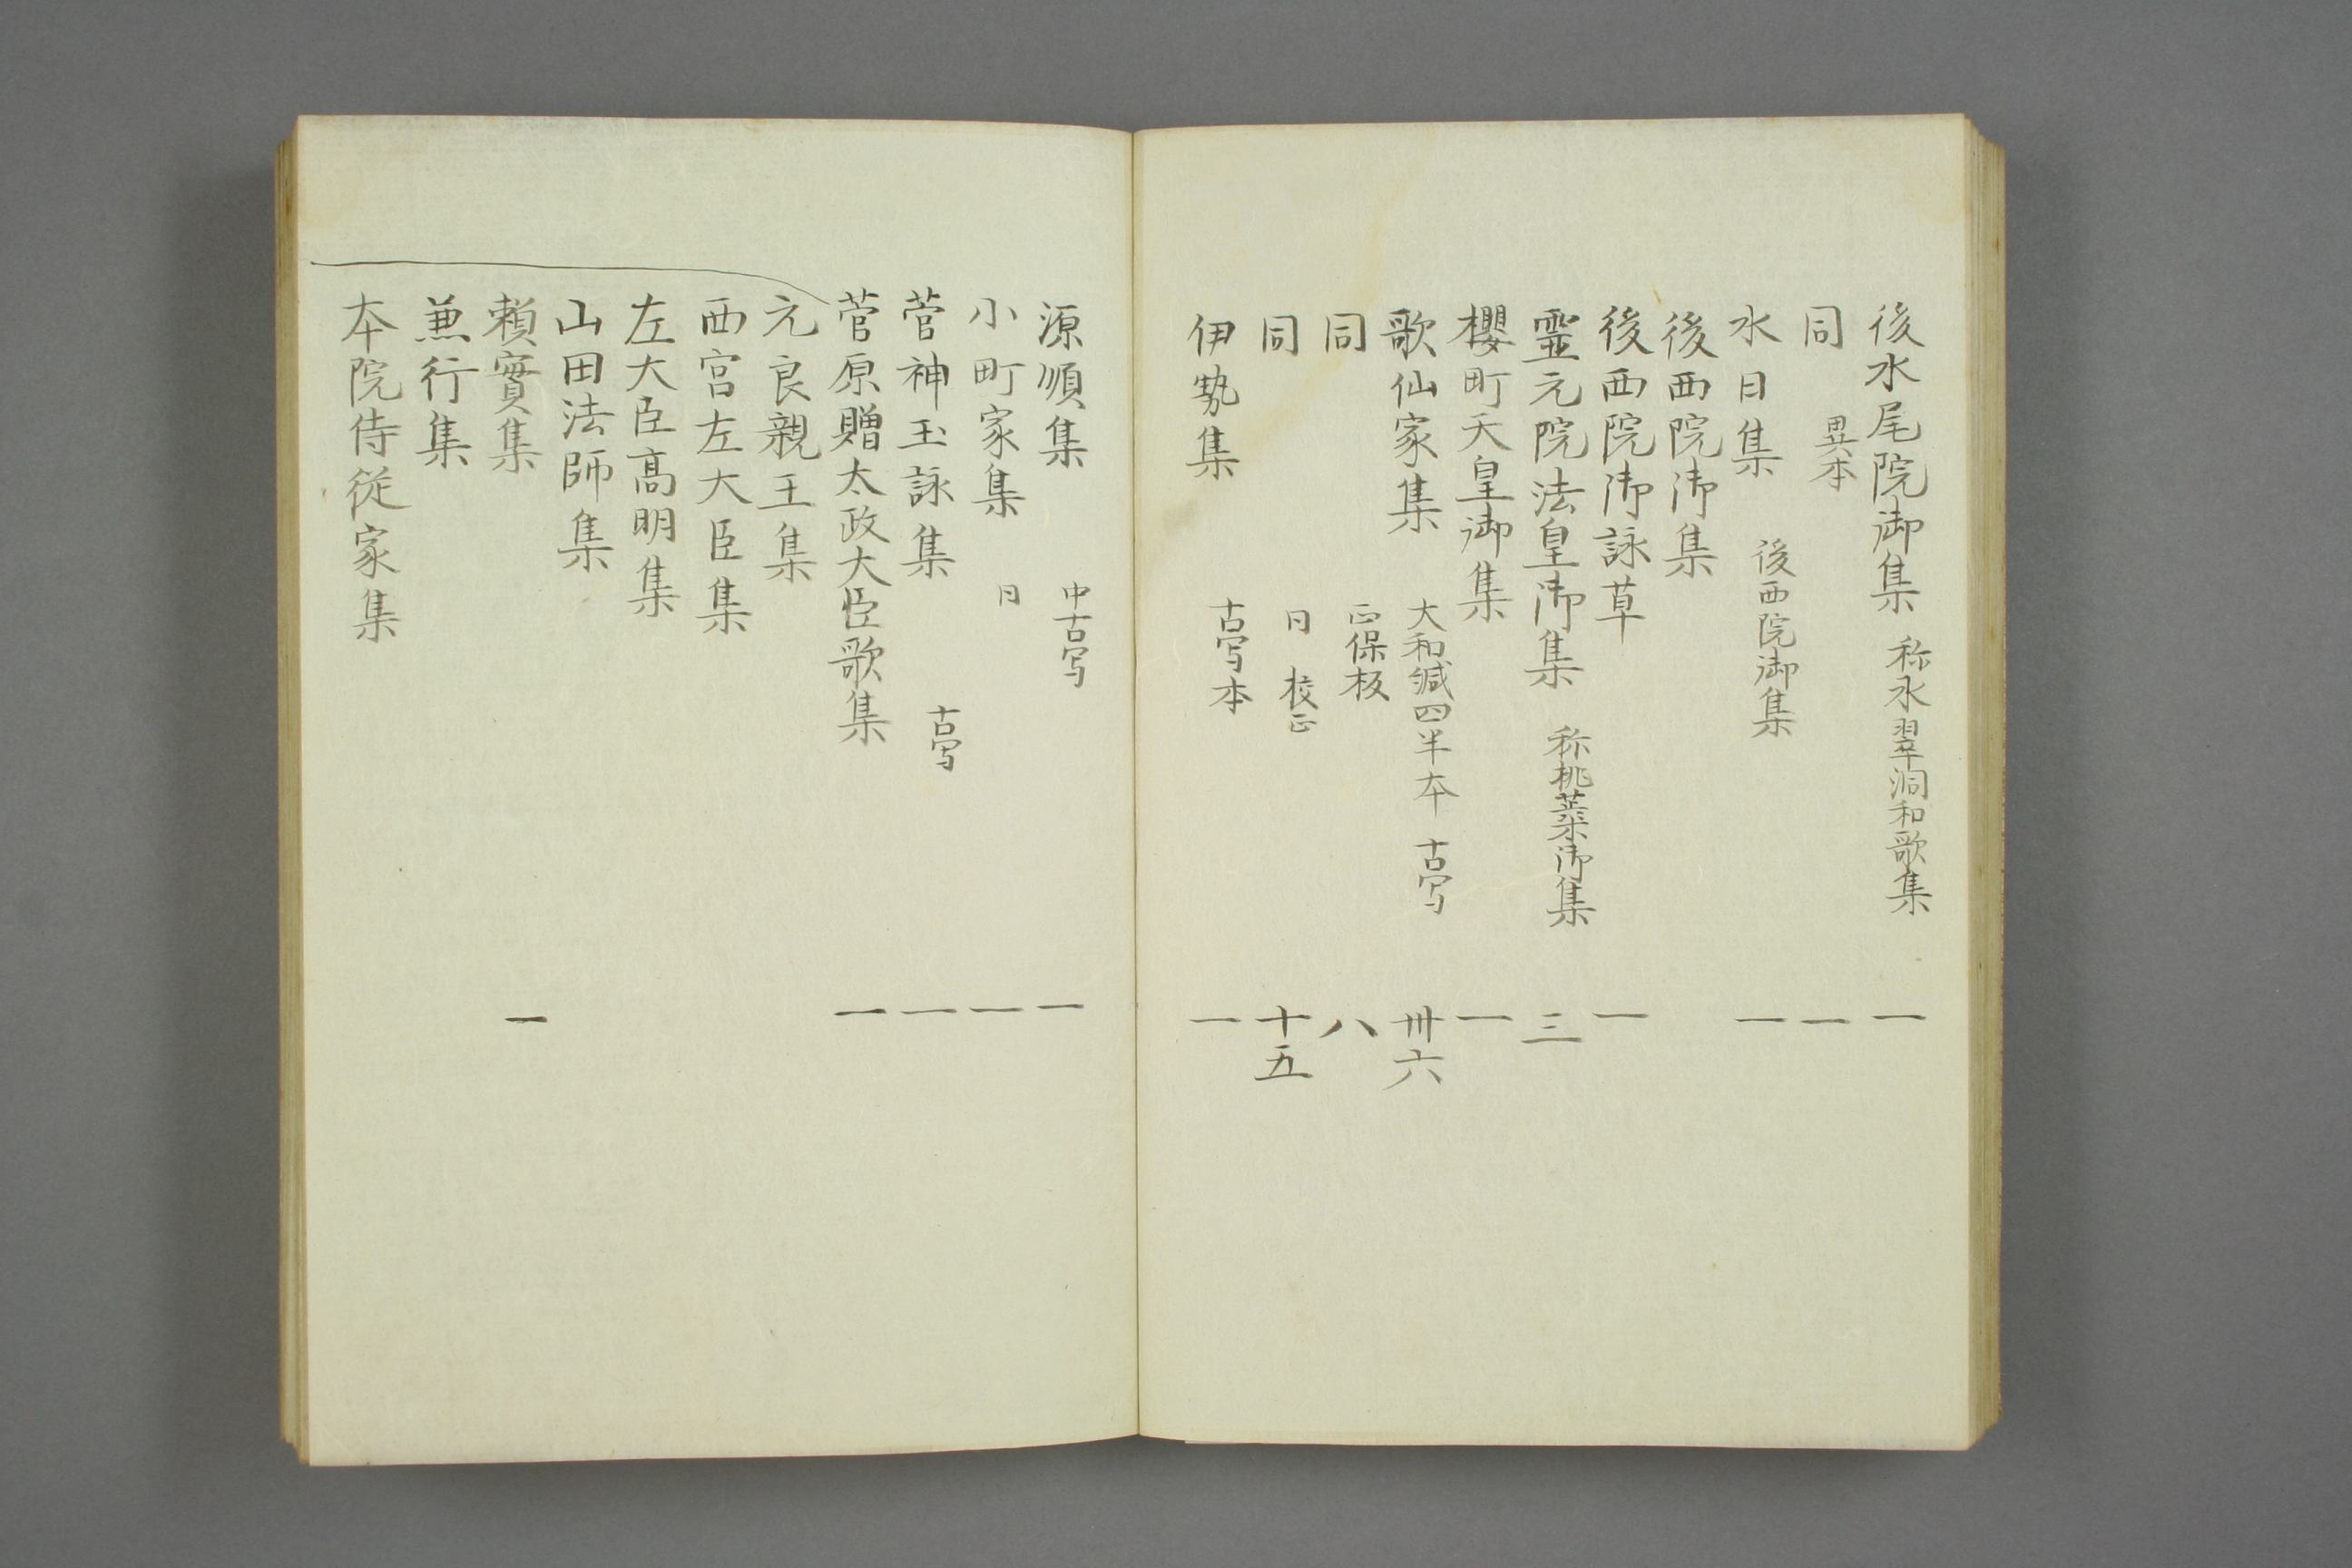 後水尾院御集 称水翠洞和歌集 一
同 異本 一
水日集 後西院御集 一
後西院御集
後西院御詠草 一
靈元院法皇御集 称桃蘂御集 三
櫻町天皇御集 一
歌仙家集 大和綴四半本 古写 卅六
同 正保板 八
同 日 校正 十五
伊勢集 古写本 一
源順集 中古写 一
小町家集 日 一
菅神玉詠集 古写 一
菅原贈太政大臣歌集 一
元良親王集
西宮左大臣集
左大臣高明集
山田法師集
頼實集 一
兼行集
本院侍従家集